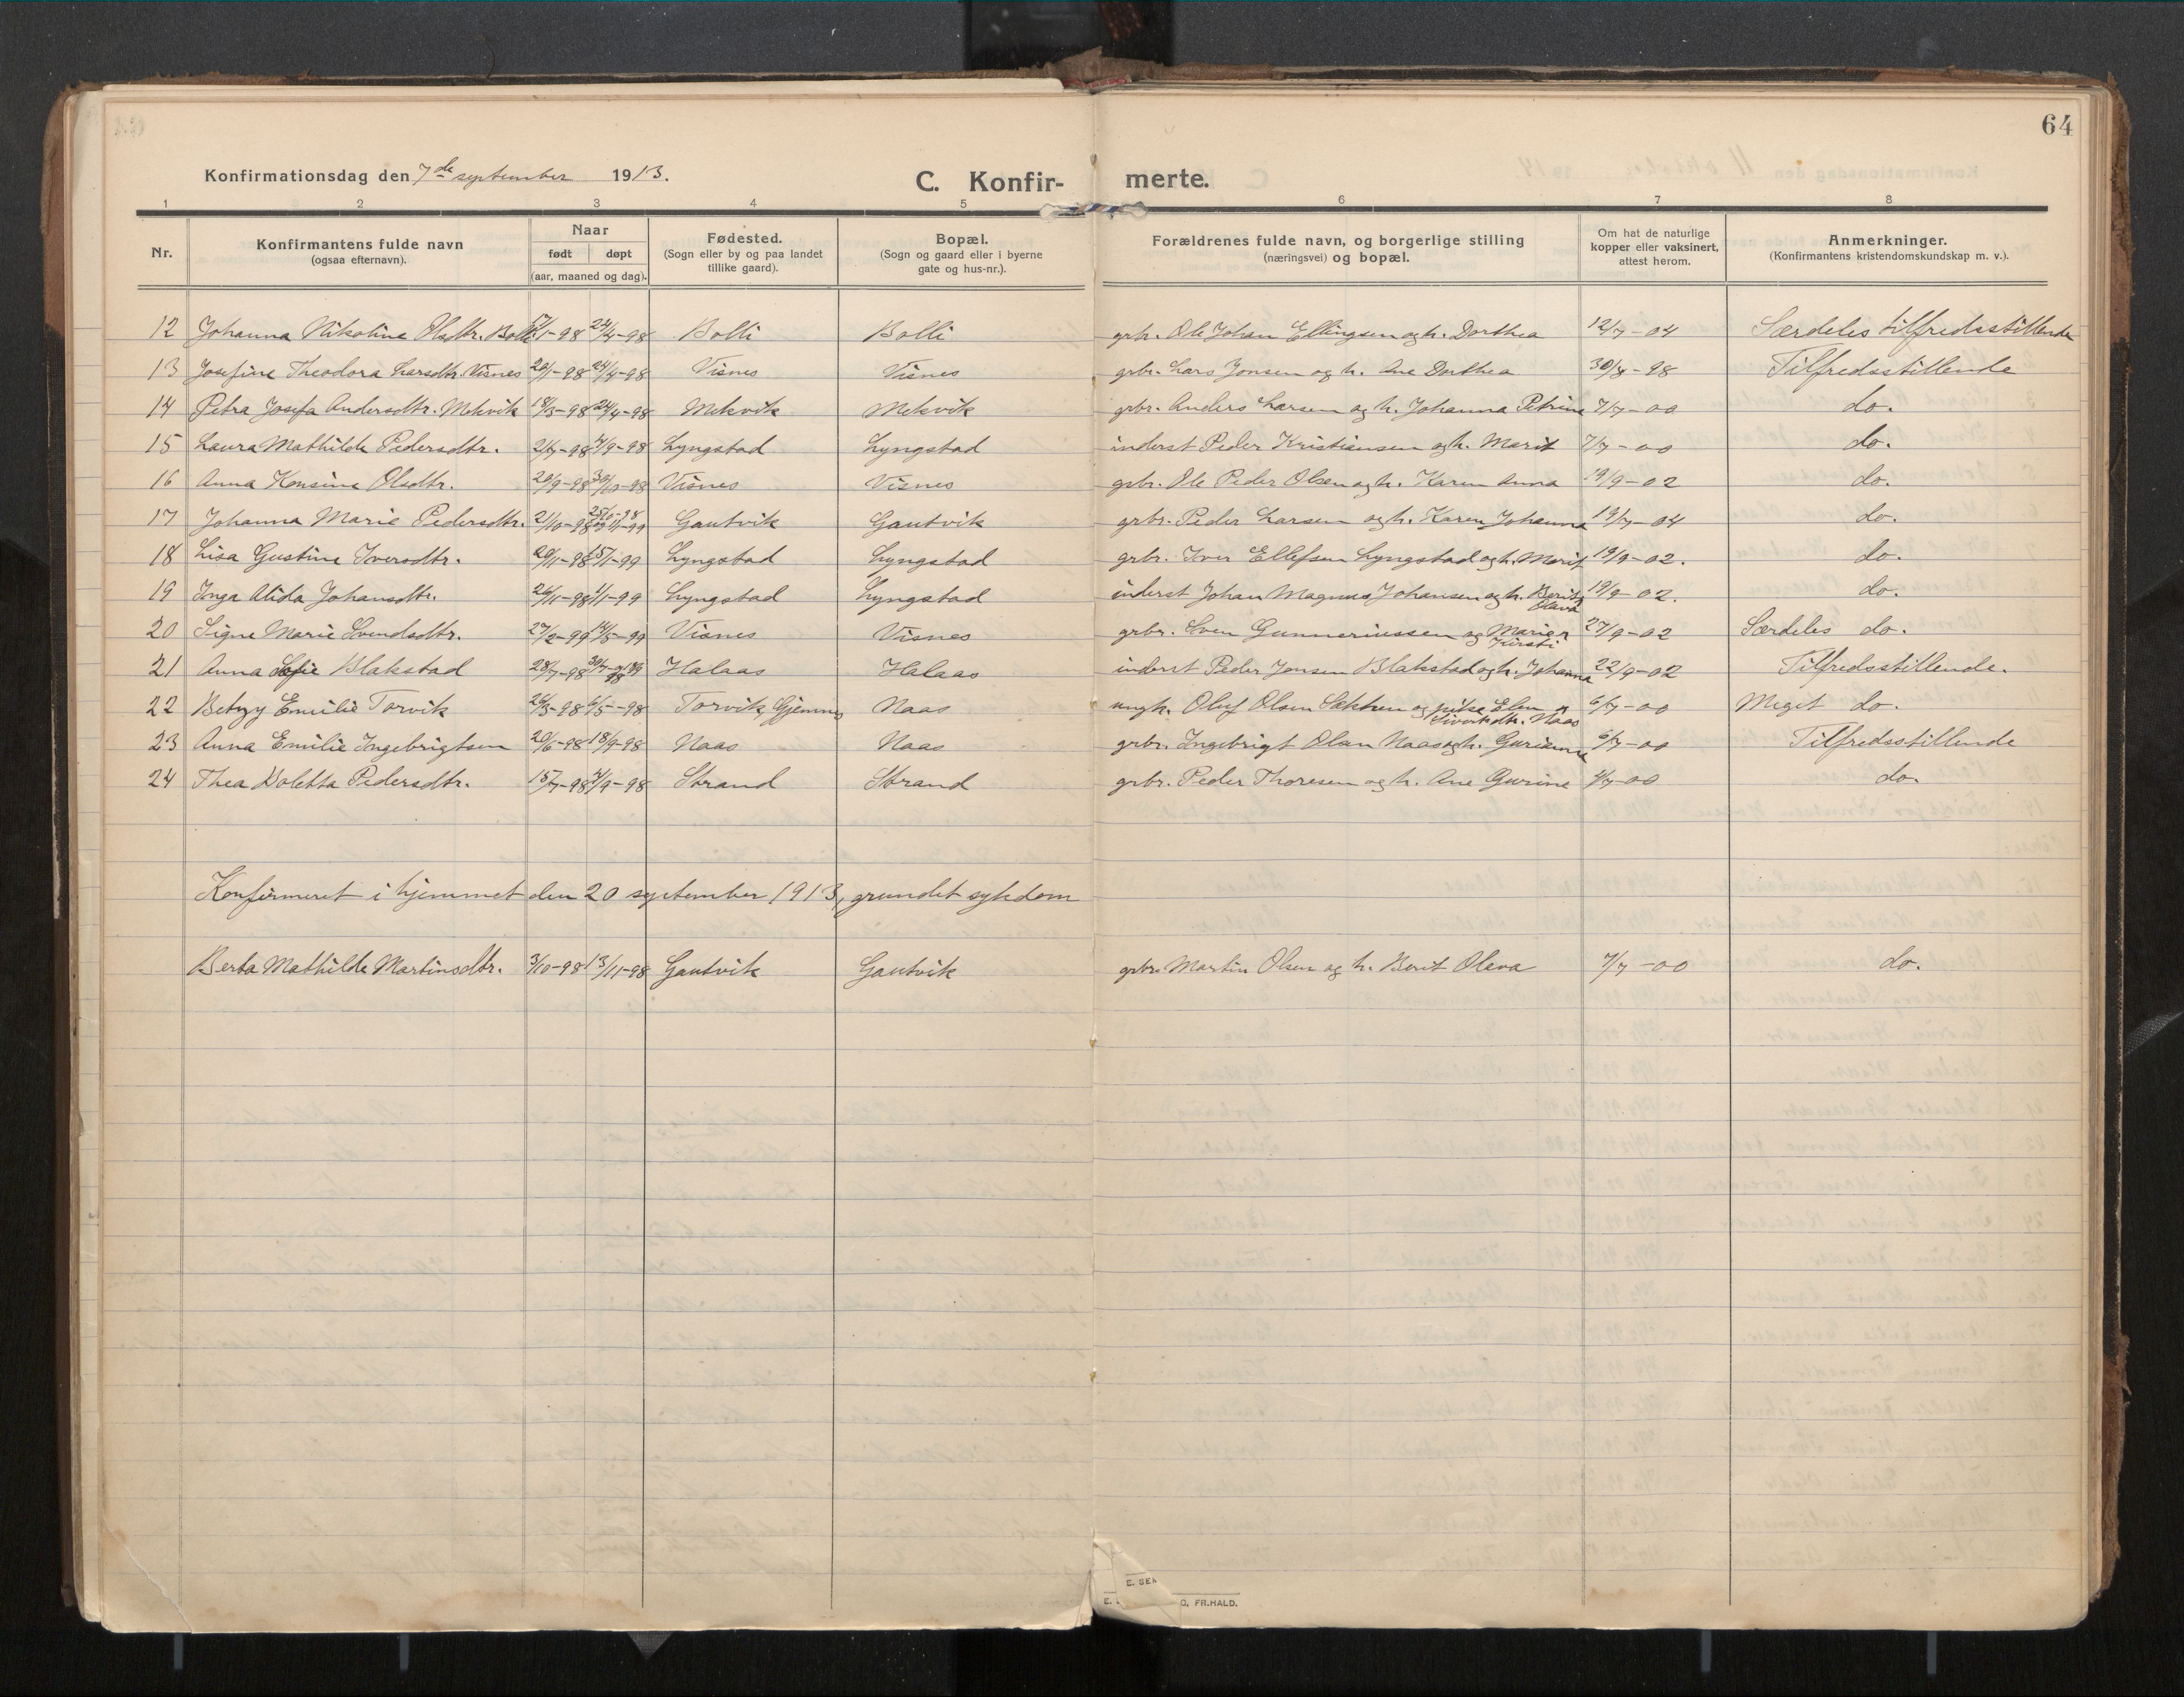 64
Konfirmationsdag den 7de september 1913.
C. Konfir- merte.
1 2 3 4 5 6 7 8
Nr. Konfirmantens fulde navn (ogsaa efternavn). Naar født døpt (aar, maaned og dag). Fødested. (Sogn eller by og paa landet tillike gaard). Bopæl. (Sogn og gaard eller i byerne gate og hus-nr.). Forældrenes fulde navn, og borgerlige stilling (næringsvei) og bopæl. Om hat de naturlige kopper eller vaksinert, attest herom. Anmerkninger. (Konfirmantens kristendomskundskap m. v.).
12 Johanna Nikoline Olsdtr. Bolli 1-98 24/4-98 Bolli Bolli grbr. Ole Johan Ellingsen og h. Dorthea 12/7-04 Særdeles tilfredsstillende
13 Josefine Theodora Larsdtr. Visnes 20/1-98 24/4-98 Visnes Visnes grbr. Lars Jonsen og h. Ane Dorthea 30/8-98 Tilfredsstillende
14 Petra Josefa Andersdtr. Mekvik 18/3-98 24/4-98 Mekvik Mekvik grbr. Anders Larsen og h. Johanna Petrine 7/7-00 do.
15 Laura Mathilde Pedersdtr. 2/7-98 4/9-98 Lyngstad Lyngstad inderst Peder Kristiansen og h. Marit 7/7-00 do.
16 Anna Konsine Olsdtr. 20/9-98 30/10-98 Visnes Visnes grbr. Ole Peder Olsen og h. Karen Anna 19/9-02 do.
17 Johanna Marie Pedersdtr. 21/10-98 25/10-98 og 1/1-99 Gautvik Gautvik grbr. Peder Larsen og h. Karen Johanna 19/7-04 do.
18 Lisa Gustine Iversdtr. 20/11-98 15/1-99 Lyngstad Lyngstad grbr. Iver Ellefsen Lyngstad og h. Marit 19/9-02. do.
19 Inga Alida Johansdtr. 26/11-98 1/1-99 Lyngstad Lyngstad inderst Johan Magnus Johansen og h. Berit Olava 19/9-02. do.
20 Signe Marie Svendsdtr. 27/2-99 14/5-99 Visnes Visnes grbr. Sven Gunneriussen og Marie Kirsti 27/9-02 Særdeles do.
21 Anna Sofie Blakstad 28/7-98 Halaas Halaas inderst Peder Jonsen Blakstad og h. Johanna 22/9-02 Tilfredsstillende.
22 Betzy Emilie Torvik 26/3-98 6/5-98 Torvik, Gjemnes Naas ungk. Oluf Olsen og pike Elen Sivertsdtr. Naas 6/7-00 Meget do.
23 Anna Emilie Ingebrigtsen 20/6-98 18/9-98 Naas Naas grbr. Ingebrigt Olsen Naas og h. Gurianna 6/7-00 Tilfredsstillende
24 Thea Doletta Pedersdtr. 15/7-98 4/9-98 Strand Strand grbr. Peder Thoresen og h. Ane Gurine 4/7-00 do.
Konfirmeret i hjemmet den 20 september 1913, grundet sykdom
Berta Mathilde Martinsdtr. 3/10-98 13/11-98 Gautvik Gautvik grbr. Martin Olsen og h. Berit Olava 7/7-00 do.
E. SEM
FR.HALD.